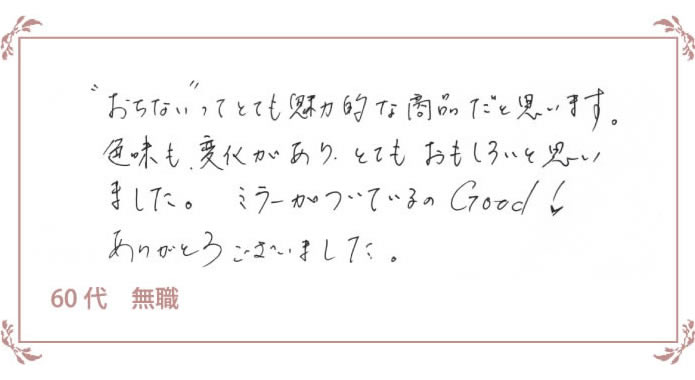 “おちない”ってとても魅力的な商品だと思います。
色味も、変化があり、とてもおもしろいと思い
ました。 ミラーがついているの Good!
ありがとうございました。
60代 無職